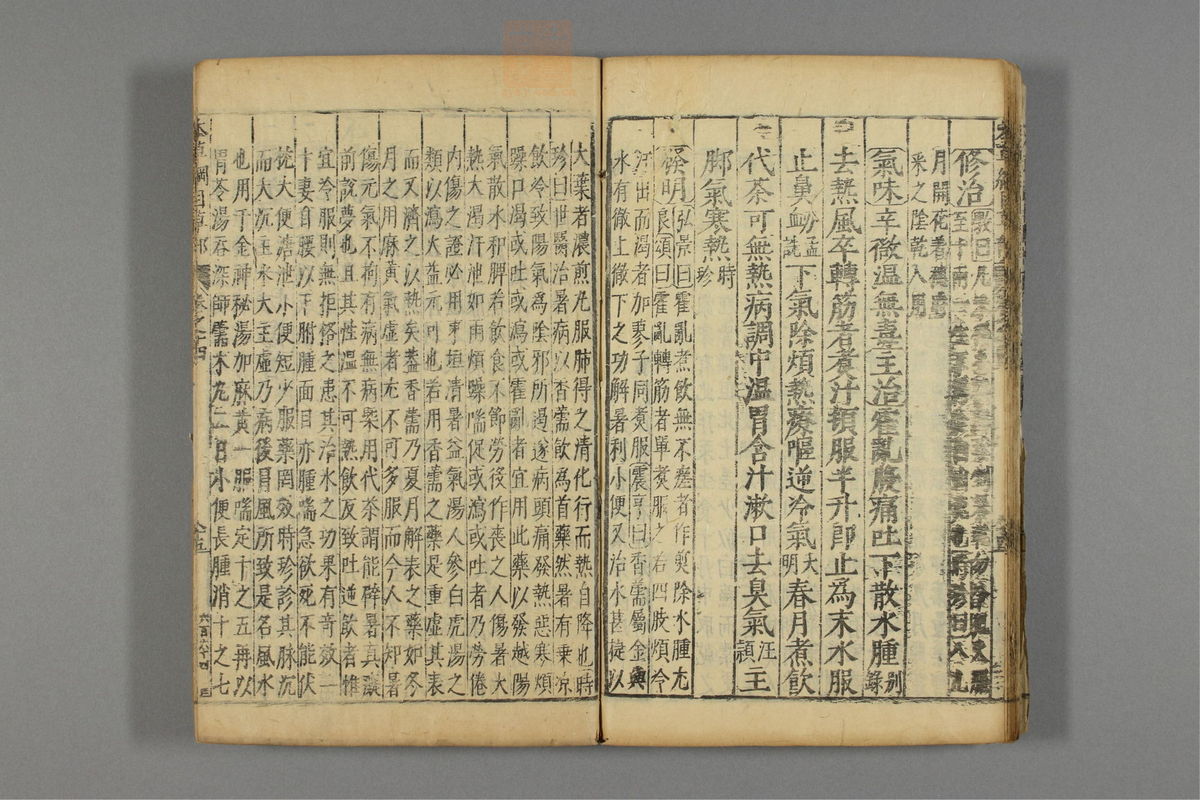 修治
月開花着穗時
采之陰乾入用
氣味辛微温無毒主治霍亂腹痛吐下散水腫别錄
去熱風卒轉筋者煮汁頓服半升即止為末水服
止鼻衂孟詵下氣除煩熱療嘔逆冷氣大明春月煮飲
代茶可無熱病調中温胃含汁漱口去臭氣汪頴主
脚氣寒熱時珍
發明弘景曰霍亂煮飲無不瘥者作煎除水腫尤
良頌曰霍亂轉筋者單煮服之若四肢煩冷
汗出而渴者加蓼子同煮服震亨曰香薷屬金與
水有徹上徹下之功解暑利小便又治水甚捷以
大葉者濃煎丸服肺得之清化行而熱自降也時
珍曰世醫治暑病以香薷飲為首藥然暑有乗凉
飲冷致陽氣為陰邪所遏遂病頭痛發熱惡寒煩
躁口渴或吐或瀉或霍亂者宜用此藥以發越陽
氣散水和脾若飲食不節勞役作喪之人傷暑大
熱大渴汗泄如雨煩躁喘促或瀉或吐者乃勞倦
内傷之證必用東垣清暑益氣湯人參白虎湯之
類以瀉火益元可也若用香薷之藥是重虚其表
而又濟之以熱矣葢香薷乃夏月解表之藥如冬
月之用麻黄氣虚者尤不可多服而今人不知暑
傷元氣不拘有病無病槩用代茶謂能辟暑真癡
前說夢也且其性温不可熱飲反致吐逆飲者惟
宜冷服則無拒格之患其治水之功果有奇效一
士妻自腰以下胕腫面目亦腫喘急欲死不能伏
枕大便溏泄小便短少服藥罔效時珍診其脉沉
而大沉主水大主虚乃病後冒風所致是名風水
也用千金神秘湯加麻黄一服喘定十之五再以
胃苓湯吞深師薷术丸二日小便長腫消十之七
本草綱目草部 卷之十四